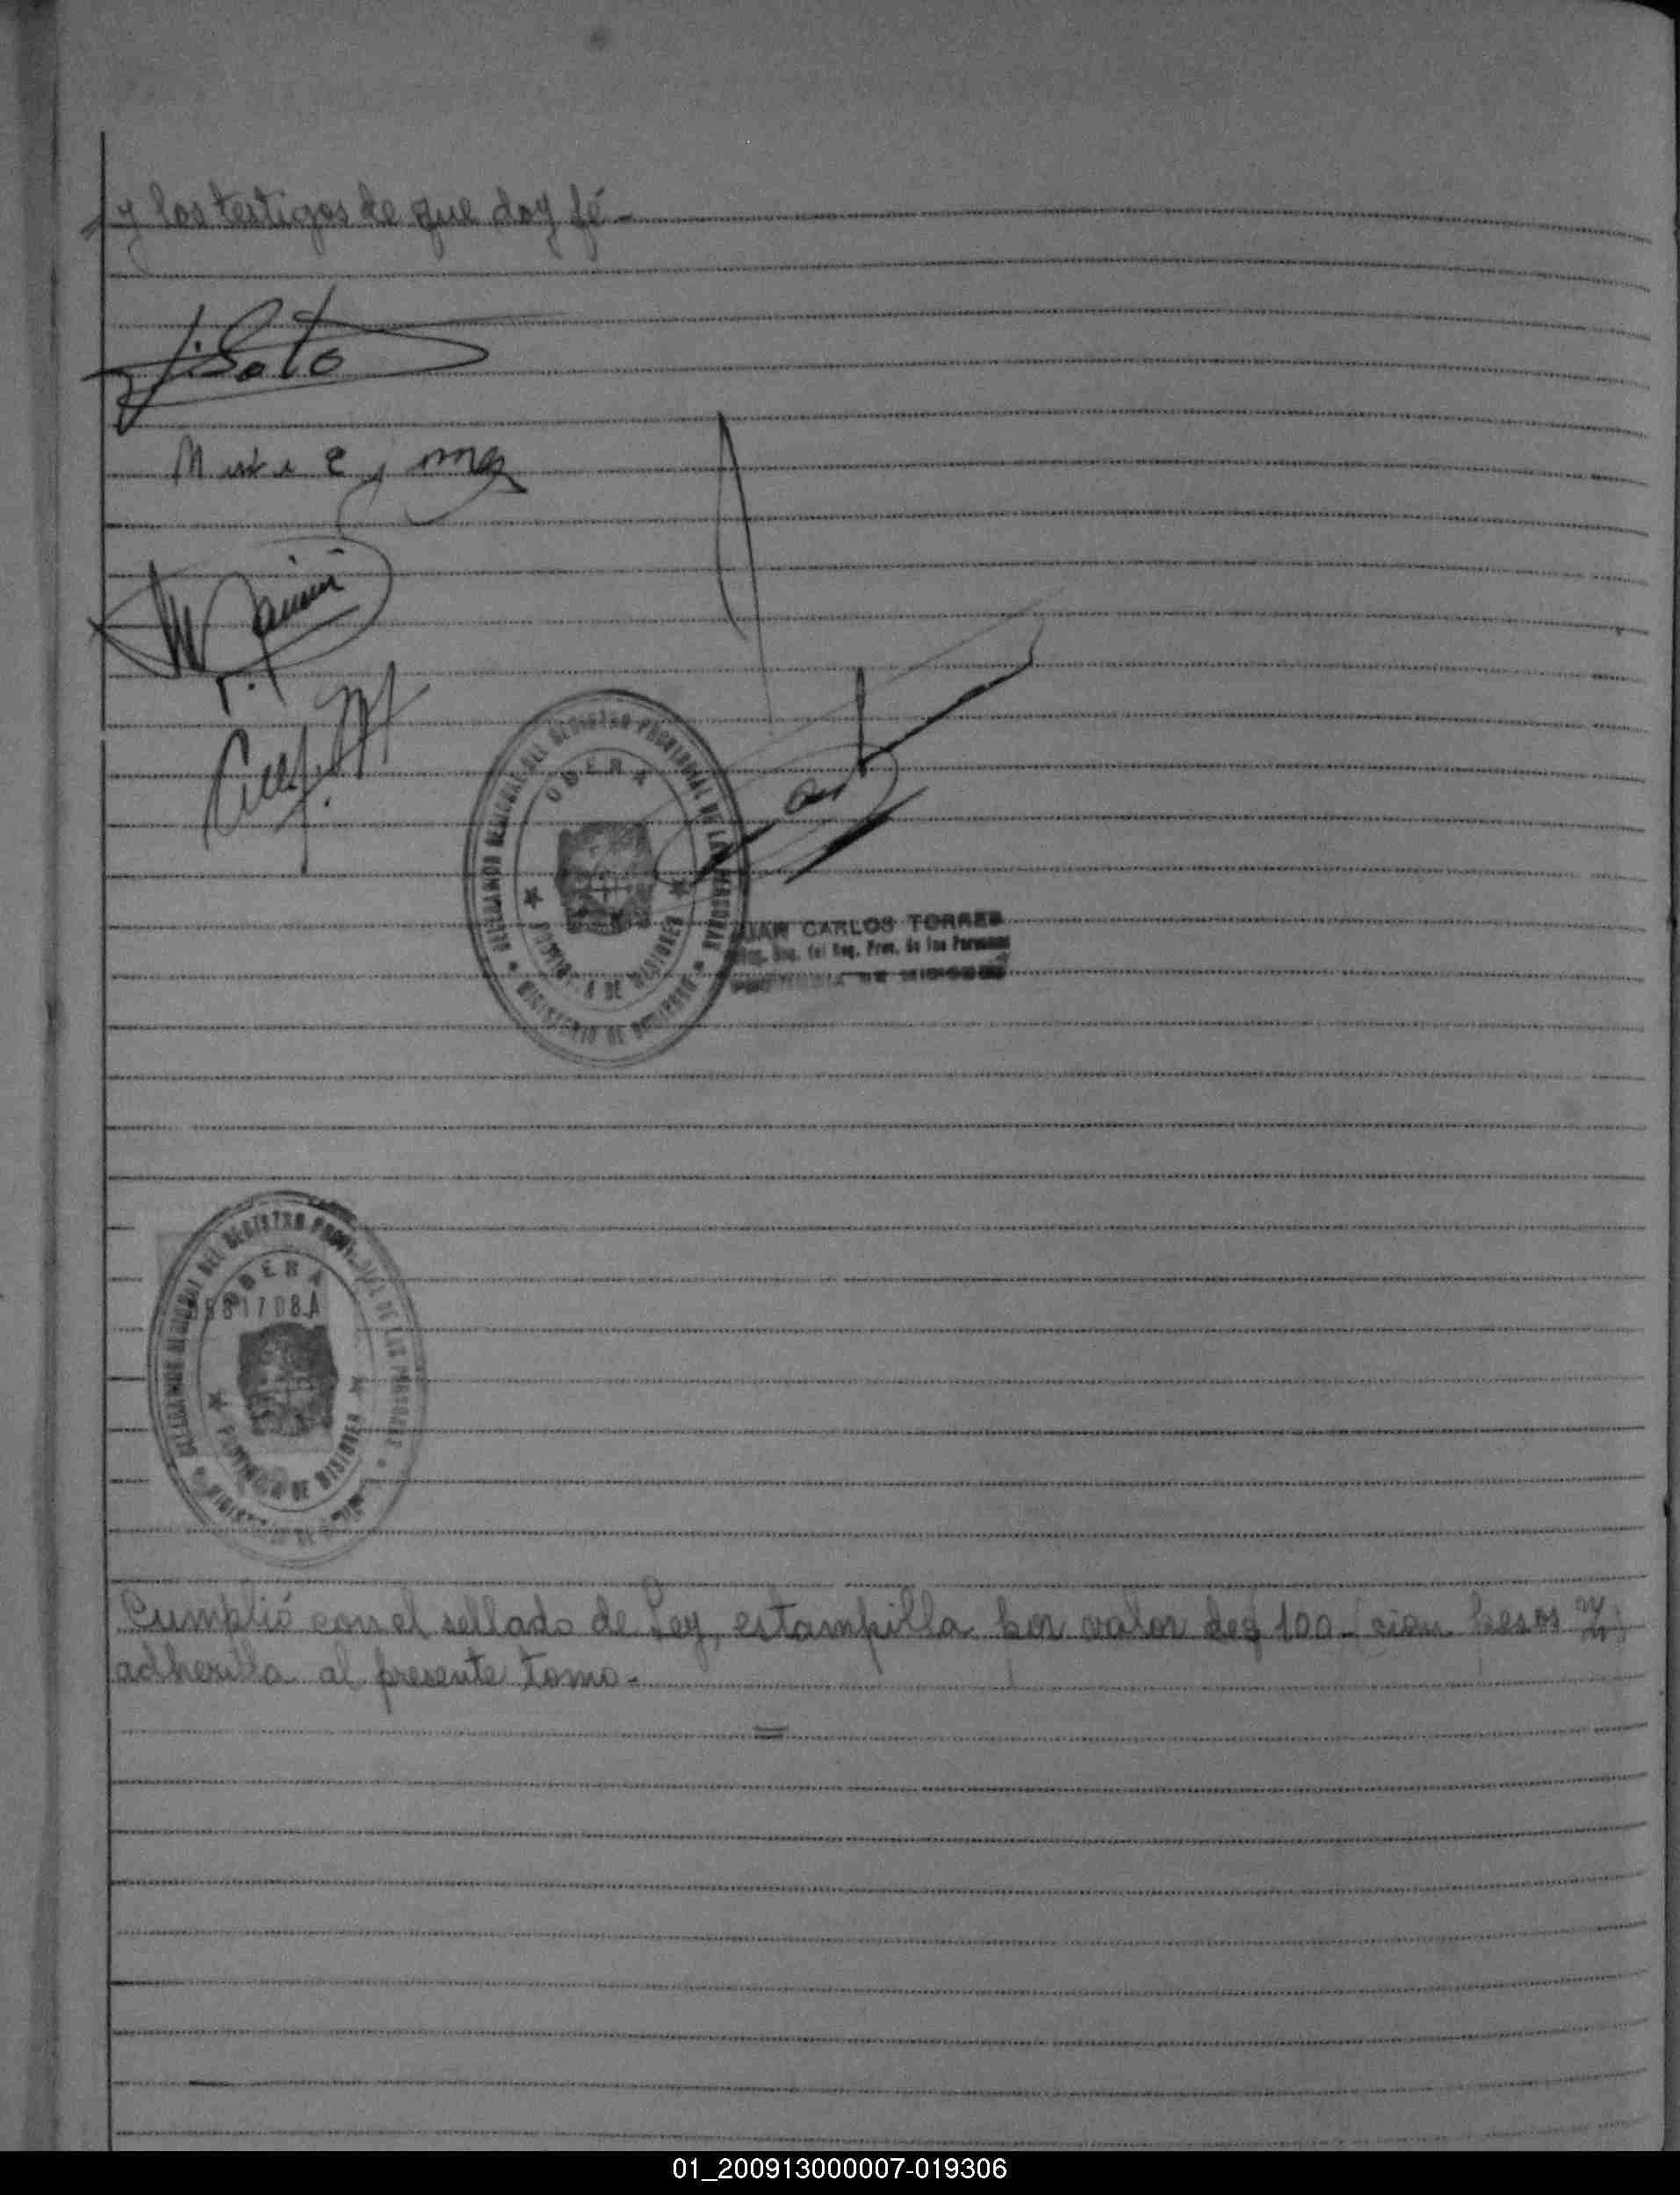 y los testigos de que doy fé.-
J. Soto
DELEGADO REGIONAL DEL REGISTRO PROVINCIAL DE LAS PERSONAS
OBERA
PROVINCIA DE MISIONES
MINISTERIO DE GOBIERNO
JUAN CARLOS TORRES
Reg. Prov. de las Personas
PROVINCIA DE MISIONES
DELEGADO REGIONAL DEL REGISTRO PROVINCIAL DE LAS PERSONAS
OBERA
1708A
PROVINCIA DE MISIONES
Cumplió con el sellado de Ley, estampilla por valor de $ 100.- (cien pesos m/n)
adherida al presente tomo.-
01_200913000007-019306